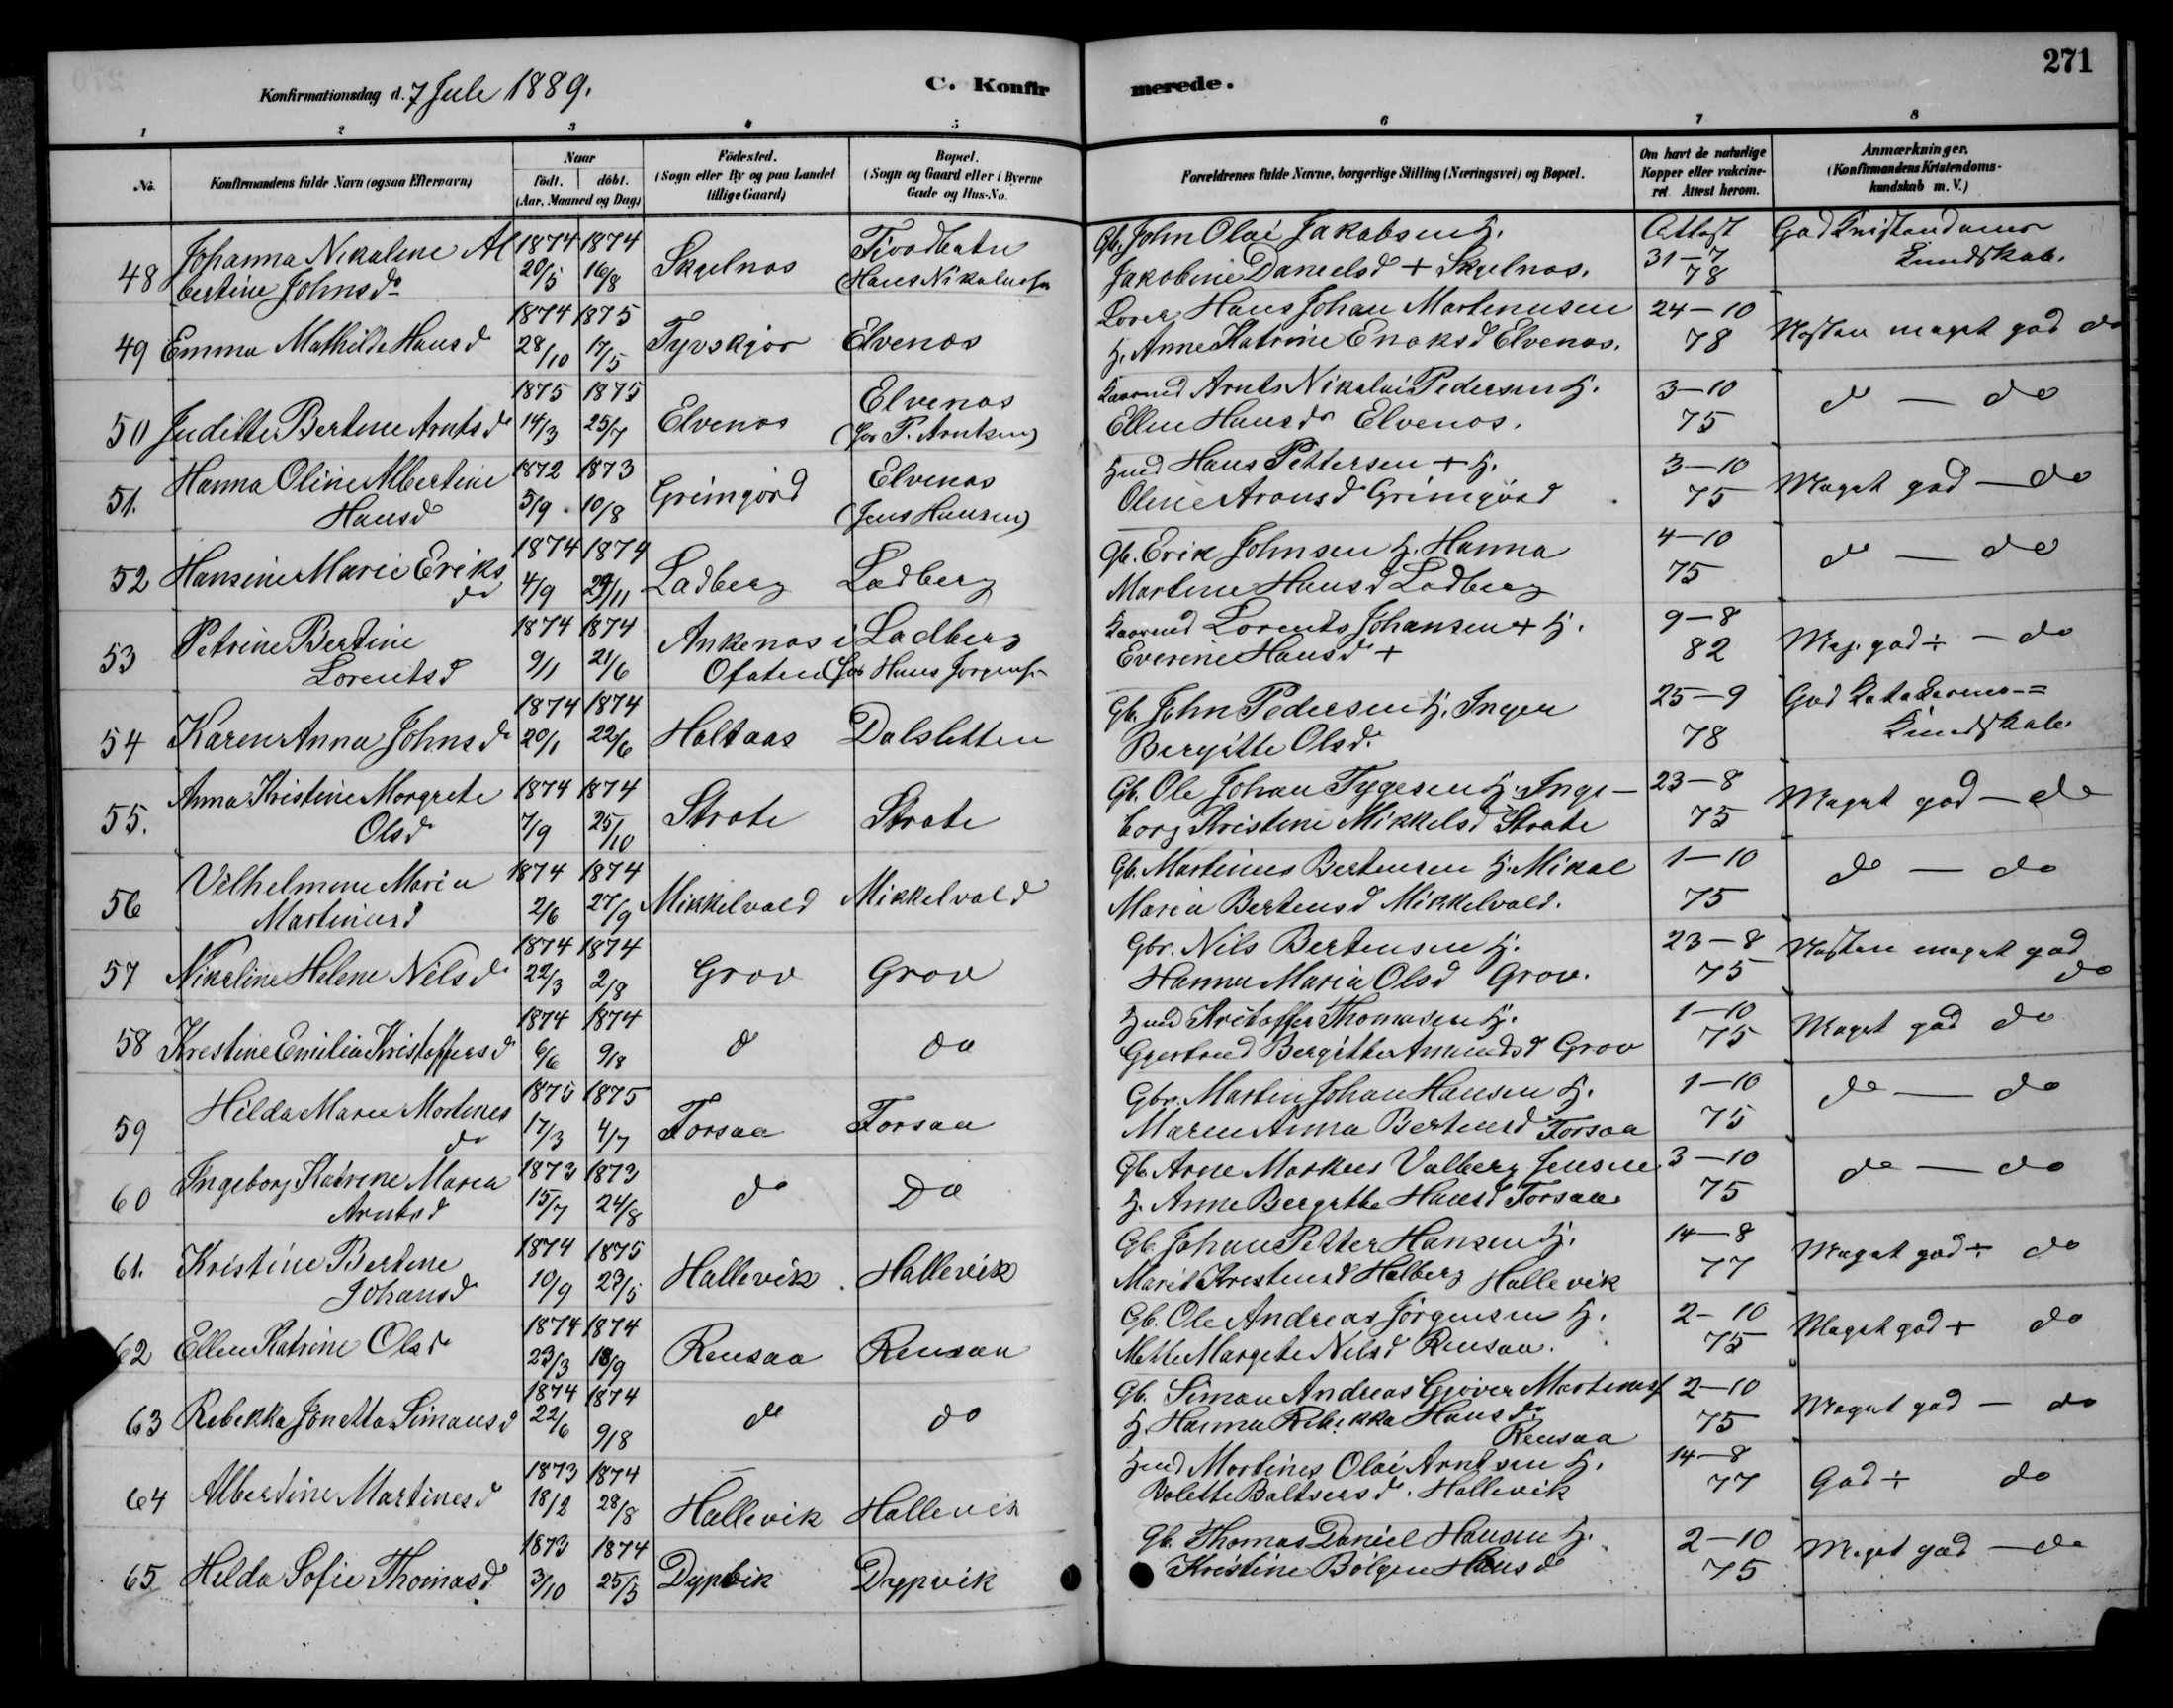 271
Konfirmationsdag d. 7 Juli 1889.
C. Konfirmerede.
1 2 3 4 5 6 7 8
No.
Konfirmandens fulde Navn (ogsaa Efternavn)
Naar
födt. döbt.
(Aar, Maaned og Dag)
Födested.
(Sogn eller By og paa Landet
tillige Gaard)
Bopæl.
(Sogn og Gaard eller i Byerne
Gade og Hus-No.
Forældrenes fulde Navne, borgerlige Stilling (Næringsvei) og Bopæl.
Om havt de naturlige
Kopper eller vakcine-
ret. Attest herom.
Anmærkninger.
(Konfirmandens Kristendoms-
kundskab m. V.)
Johanna Nikoline Al 1874 1874 Gb. John Olai Jakobsen H. Attest God Kristendoms
48 bertine Johnsd 20/5 16/8 Skjelnes (Hans Nikolaisen Jakobine Danielsd + Skjelnes. 31-7 78 Kundskab.
1874 1875 Hans Johan Martenusen 24-10
49 Emma Mathilde Hansd 28/10 17/5 Tyvskjær Elvenes H. Anne Katrine Enoksd Elvenes. 78 Næsten meget god do
1875 1875 Elvenes Arnts Nikolai Pedersen H. 3-10
50 Juditte Bertine Arntsd 14/3 25/7 Elvenes (for P. Arntsen) Ellen Hansd Elvenes. 75 do - do
Hanna Oline Albertine 1872 1873 Elvenes Hmd Hans Pettersen + H. 3-10
51. Hansd 5/9 10/8 Grimgård (Jens Hansen) Oline Aronsd Grimgård 75 Meget god - do
1874 1874 Gb. Erik Johnsen H. Hanna 4-10
52 Hansine Marie Eriksd 4/9 29/11 Ladberg Ladberg Martine Hansd Ladberg 75 do - do
Petrine Bertine 1874 1874 Ankenes i Ladberg Lorents Johansen + H. 9-8
53 Lorentsd 9/1 21/6 Ofoten (for Hans Jørgens. Everine Hansd + 82 Meg. god ÷ - do
1874 1874 Gb. John Pedersen H. Inger 25-9 God
54 Karen Anna Johnsd 20/1 22/6 Holtaas Dalsletten Bergitte Olsd. 78 Kundskab
Anna Kristine Margrete 1874 1874 Gb. Ole Johan Tygesen H. Inge- 23-8
55. Olsd 7/9 25/10 Strate Strate borg Kristine Mikkelsd Strate 75 Meget god - do
Vilhelmine Maria 1874 1874 Gb. Martinus Bertensen H. Mikal 1-10
56 Martinusd 2/6 27/9 Mikkelvold Mikkelvold Maria Bertensd Mikkelvold. 75 do - do
1874 1874 Gbr. Nils Bertensen H. 23-8 Næsten meget god
57 Nikoline Helene Nilsd 22/3 2/8 Grov Grov Hanna Maria Olsd Grov. 75 do
1874 1874 Hmd Kristoffer Thomasen H. 1-10
58 Krestine Emilie Kristoffersd 6/6 9/8 d do Gjertrud Bergitte Amundsd Grov 75 Meget god do
Hilda Maren Martines 1875 1875 Gbr. Martin Johan Hansen H. 1-10
59 d 17/3 4/7 Forsaa Forsaa Maren Anna Bertensd Forsaa 75 do - do
Ingeborg Katrine Maria 1873 1873 Gb. Arne Markus Valberg Jensen 3-10
60 Arntsd 15/7 24/8 do Do H. Anne Bergitte Hansd Forsaa 75 do - do
Kristine Bertine 1874 1875 Gb. Johan Petter Hansen H. 14-8
61. Johansd 10/9 23/5 Hallevik Hallevik Marit Kristensd Halberg Hallevik 77 Meget god ÷ do
1874 1874 Gb. Ole Andreas Jörgensen H. 2-10
62 Ellen Katrine Olsd 23/3 18/9 Rensaa Rensaa Mette Margrete Nilsd Rensaa. 75 Meget god + do
1874 1874 Gb. Simon Andreas Gjøver Martens. 2-10
63 Rebekka Jonetta Simonsd 22/6 9/8 do do H. Hanna Rebekka Hansd. Rensaa 75 Meget god - do
1873 1874 Hmd Martines Olai Arntsen H. 14-8
64 Albertine Martinesd 18/2 28/8 Hallevik Hallevik Bolette Baltsersd. Hallevik 77 God ÷ do
1873 1874 Gb. Thomas Daniel Hansen H. 2-10
65 Helda Sofie Thomasd. 3/10 25/5 Dypvik Dypvik Kristine Bolgen Hansd 75 Meget god - do